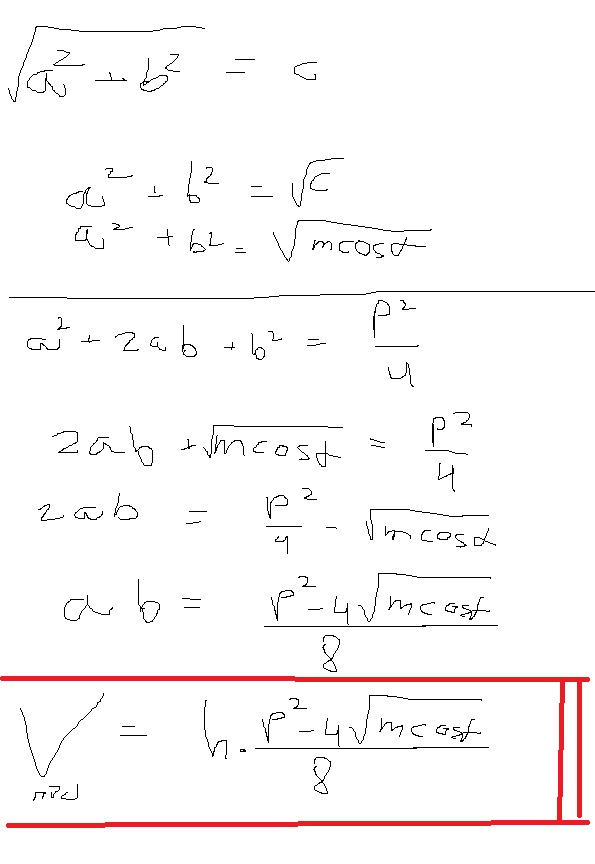 √(a² + b²) = c
a² + b² = √c
a² + b² = √(m cos α)
a² + 2ab + b² = p²/4
2ab + √(m cos α) = p²/4
2ab = p²/4 - √(m cos α)
ab = (p² - 4√(m cos α))/8
V = h · (p² - 4√(m cos α))/8